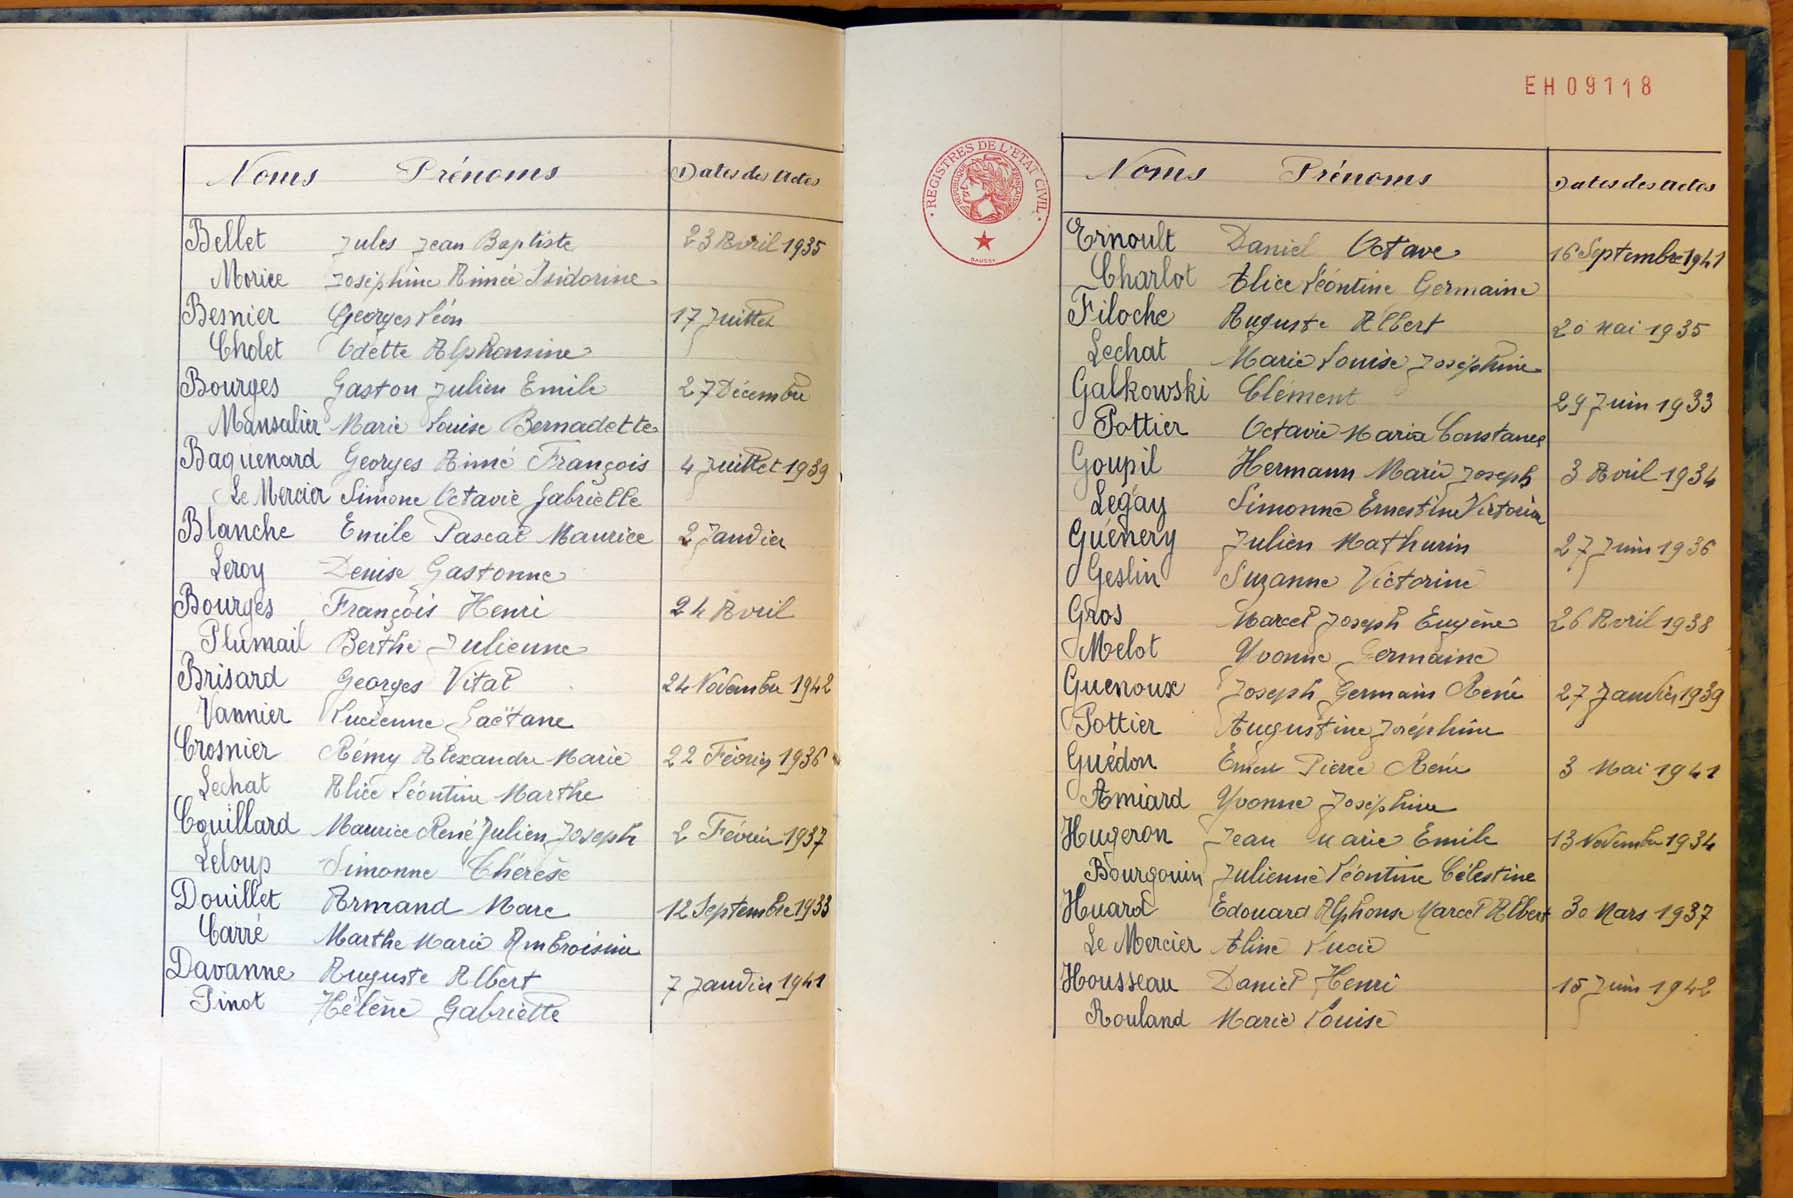 Noms Prénoms Dates des Actes
Bellet Jules Jean Baptiste 23 Avril 1935
Morice Joséphine Aimée Isidorine
Besnier Georges Léon 17 Juillet
Cholet Odette Alphonsine
Bourges Gaston Julien Emile 27 Décembre
Mansalier Marie Louise Bernadette
Baguenard Georges Aimé François 4 Juillet 1939
Le Mercier Simone Octavie Gabrielle
Blanche Emile Pascal Maurice 2 Janvier
Leroy Denise Gastonne
Bourges François Henri 24 Avril
Plumail Berthe Julienne
Brisard Georges Vital 24 Novembre 1942
Vannier Lucienne Gaëtane
Crosnier Rémy Alexandre Marie 22 Février 1936
Lechat Alice Léontine Marthe
Couillard Maurice René Julien Joseph 2 Février 1937
Leloup Simonne Thérèse
Douillet Armand Marc 12 Septembre 1933
Carré Marthe Marie Ambroisine
Davanne Auguste Albert 7 Janvier 1941
Pinot Hélène Gabrielle
EH09118
REGISTRES DE L'ETAT CIVIL
Noms Prénoms Dates des Actes
Ernoult Daniel Octave 16 Septembre 1941
Charlot Alice Léontine Germaine
Filoche Auguste Albert 20 Mai 1935
Lechat Marie Louise Joséphine
Galkowski Clément 29 Juin 1933
Pottier Octavie Maria Constance
Goupil Hermann Marie Joseph 3 Avril 1934
Legay Simonne Ernestine Victoria
Guénery Julien Mathurin 27 Juin 1936
Geslin Suzanne Victorine
Gros Marcel Joseph Eugène 26 Avril 1938
Melot Yvonne Germaine
Guenoux Joseph Germain René 27 Janvier 1939
Pottier Augustine Joséphine
Guédon Ernest Pierre René 3 Mai 1941
Amiard Yvonne Joséphine
Hugeron Jean Marie Emile 13 Novembre 1934
Bourgouin Julienne Léontine Célestine
Huard Edouard Alphonse Marcel Albert 30 Mars 1937
Le Mercier Aline Lucie
Housseau Daniel Henri 15 Juin 1942
Rouland Marie Louise